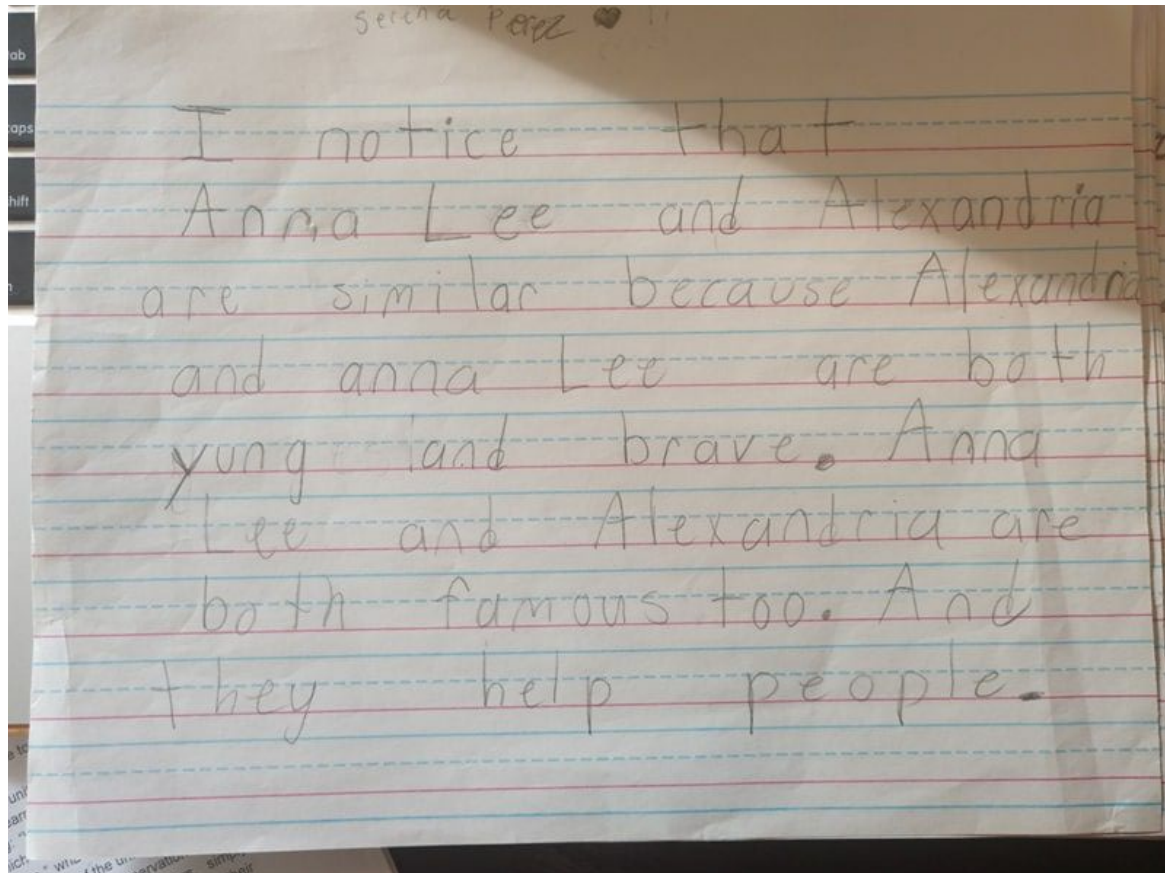 Serena Perez ♥ !!
I notice that
Anna Lee and Alexandria
are similar because Alexandria
and anna Lee are both
yung and brave. Anna
Lee and Alexandria are
both famous too. And
they help people.
caps